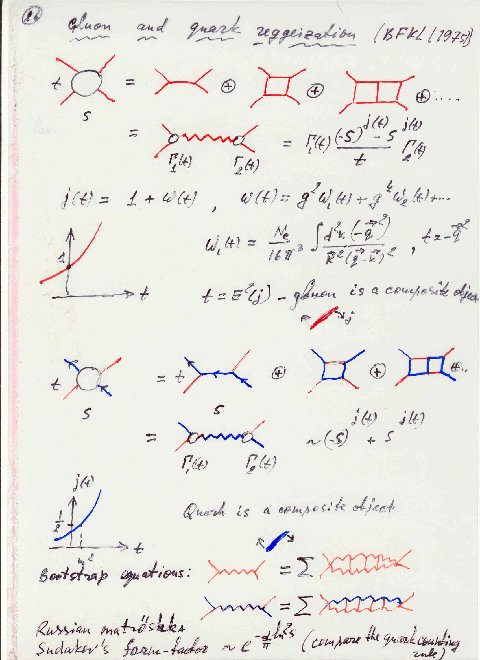 26
gluon and quark reggeization (BFKL (1975))
t = ⊕ ⊕ ⊕ ....
s
= = Γ₁(t) ((-s)^j(t) - s^j(t))/t Γ₂(t)
Γ₁(t) Γ₂(t)
j(t) = 1 + ω(t) , ω(t) = g² ω₁(t) + g⁴ ω₂(t) + ...
ω₁(t) = Nc/16π³ ∫ d²k (-q⃗²)/k⃗²(q⃗-k⃗)² , t = -q⃗²
1
t
t = E²(j) - gluon is a composite object
j
t = t ⊕ ⊕ ⊕..
s s
= ~ (-s)^j(t) + s^j(t)
Γ₁(t) Γ₂(t)
j(t)
Quark is a composite object
1/2
t
m²
Bootstrap equations: = Σ
= Σ
Russian matröshka
Sudakov's form-factor ~ (compare the quark counting rule)